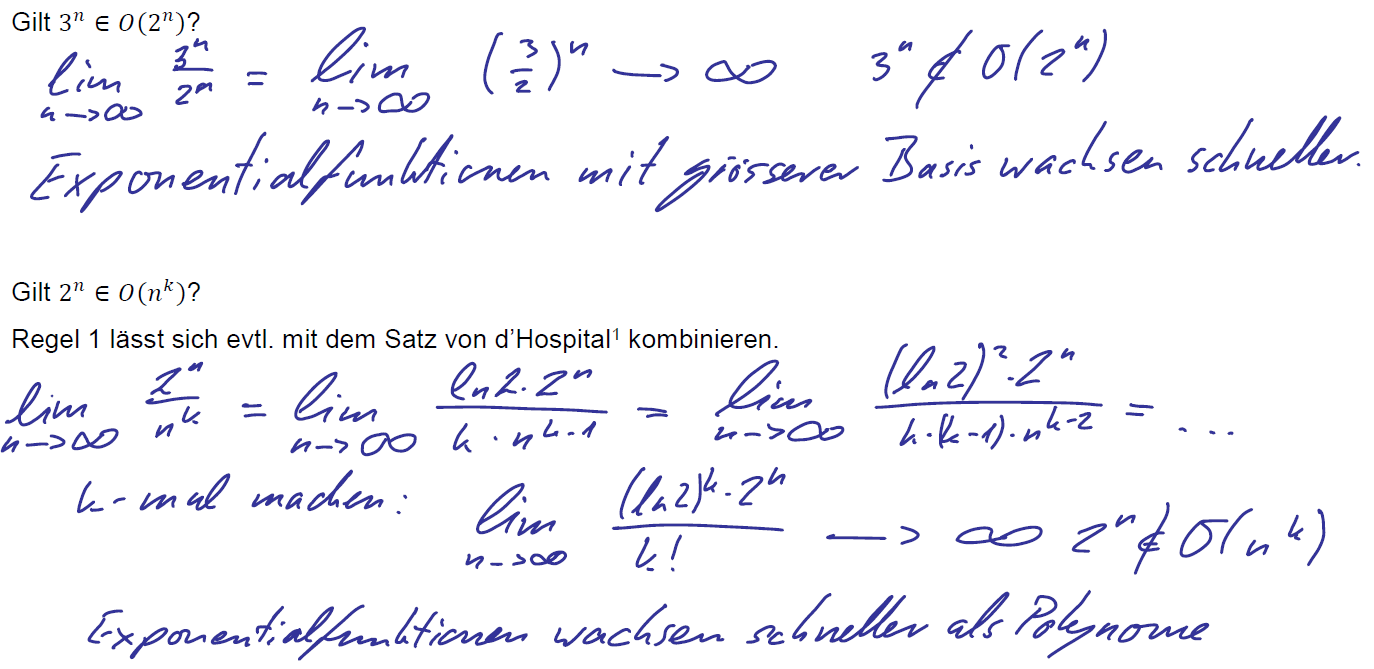 Gilt 3ⁿ ∈ O(2ⁿ)?
lim n→∞ 3ⁿ/2ⁿ = lim n→∞ (3/2)ⁿ → ∞ 3ⁿ ∉ O(2ⁿ)
Exponentialfunktionen mit grösserer Basis wachsen schneller.
Gilt 2ⁿ ∈ O(nᵏ)?
Regel 1 lässt sich evtl. mit dem Satz von d’Hospital¹ kombinieren.
lim n→∞ 2ⁿ/nᵏ = lim n→∞ (ln2·2ⁿ)/(k·nᵏ⁻¹) = lim n→∞ ((ln2)²·2ⁿ)/(k·(k-1)·nᵏ⁻²) = ...
k-mal machen: lim n→∞ ((ln2)ᵏ·2ⁿ)/k! → ∞ 2ⁿ ∉ O(nᵏ)
Exponentialfunktionen wachsen schneller als Polynome